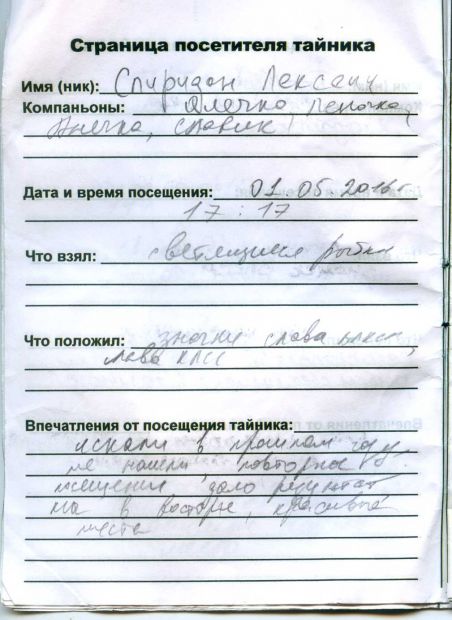 Страница посетителя тайника
Имя (ник): Спиридон Лексеич
Компаньоны: Олечка, Леночка,
Анечка, Славик
Дата и время посещения: 01 05 2016г
17:17
Что взял: светящиеся рыбки
Что положил: значки слава
слава КПСС
Впечатления от посещения тайника:
искали в прошлом году
не нашли, повторное
посещение дало результат
мы в восторге, красивые
места